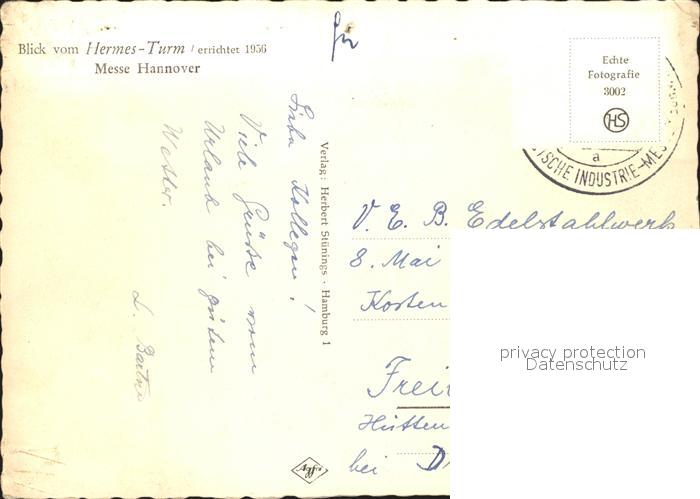 Blick vom Hermes-Turm / errichtet 1956
Messe Hannover
für
Echte
Fotografie
3002
HS
a
TSCHE INDUSTRIE-MES
Liebe Kollegen!
Viele Grüße vom
Urlaub bei gutem
Wetter.
L.
Verlag: Herbert Stünings · Hamburg 1
V. E. B. Edelstahlwerk
8. Mai
Kosten
Frei
Hütten
bei D
privacy protection
Datenschutz
Agfa